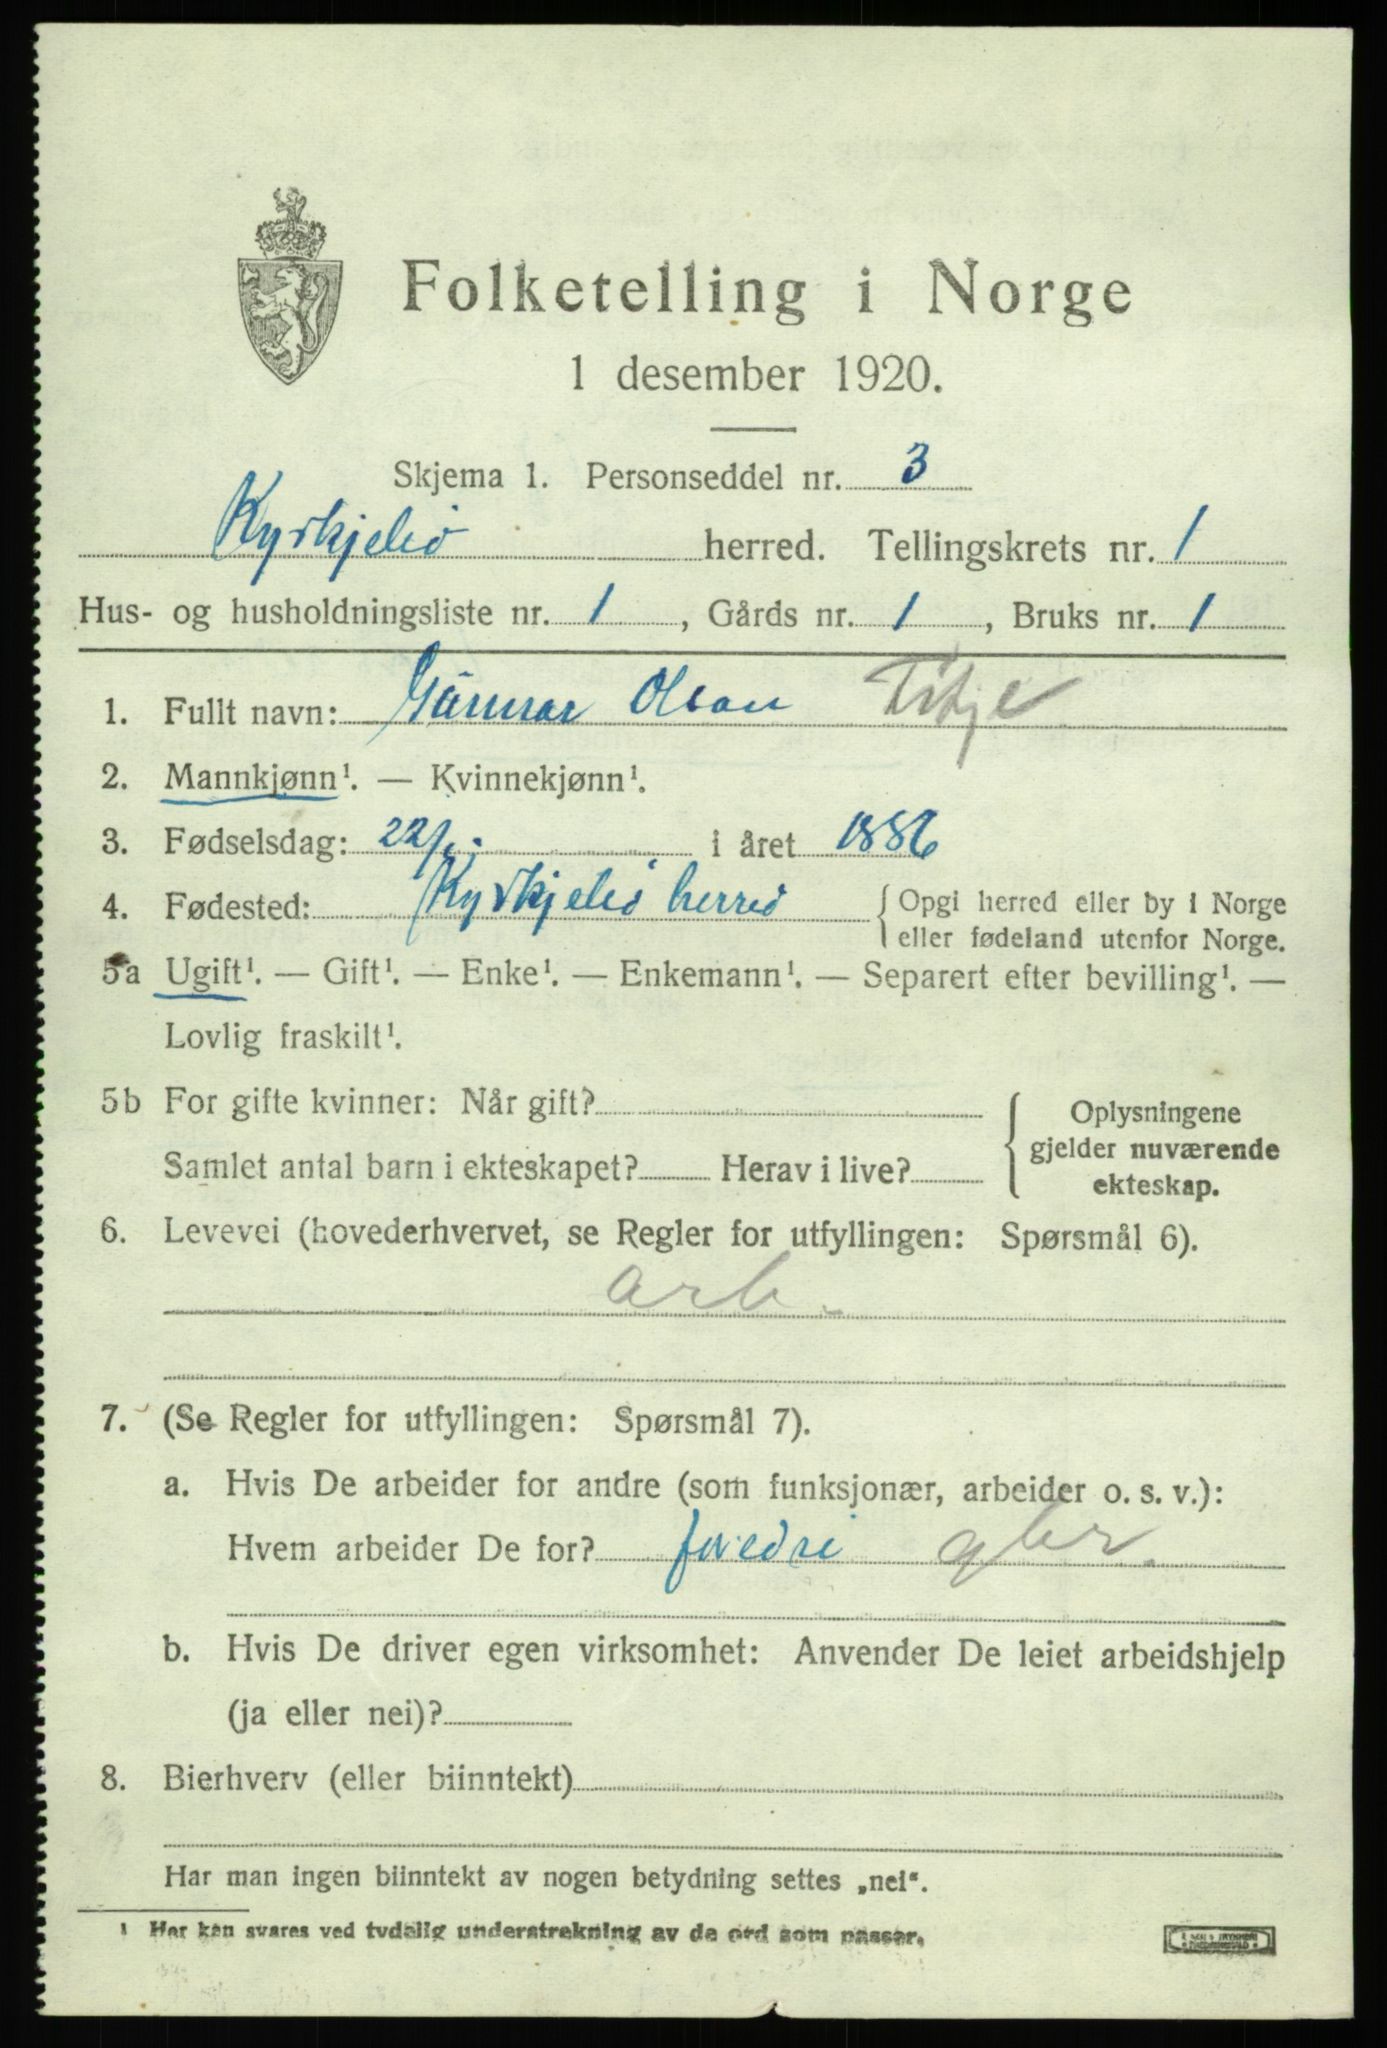 Folketelling i Norge
1 desember 1920.
Skjema 1. Personseddel nr. 3
Kyrkjebø herred. Tellingskrets nr. 1
Hus- og husholdningsliste nr. 1, Gårds nr. 1, Bruks nr. 1
1. Fullt navn: Gunnar Olson
2. Mannkjønn¹. — Kvinnekjønn¹.
3. Fødselsdag: 22/1. i året 1886
4. Fødested: Kyrkjebø herred { Opgi herred eller by i Norge
eller fødeland utenfor Norge.
5a Ugift¹. — Gift¹. — Enke¹. — Enkemann¹. — Separert efter bevilling¹. —
Lovlig fraskilt¹.
5b For gifte kvinner: Når gift?
Samlet antal barn i ekteskapet? Herav i live?
{ Oplysningene
gjelder nuværende
ekteskap.
6. Levevei (hovederhvervet, se Regler for utfyllingen: Spørsmål 6).
arb.
7. (Se Regler for utfyllingen: Spørsmål 7).
a. Hvis De arbeider for andre (som funksjonær, arbeider o. s. v.):
Hvem arbeider De for? gbr.
b. Hvis De driver egen virksomhet: Anvender De leiet arbeidshjelp
(ja eller nei)?
8. Bierhverv (eller biinntekt)
Har man ingen biinntekt av nogen betydning settes „nei“.
¹ Her kan svares ved tydelig understrekning av de ord som passer.